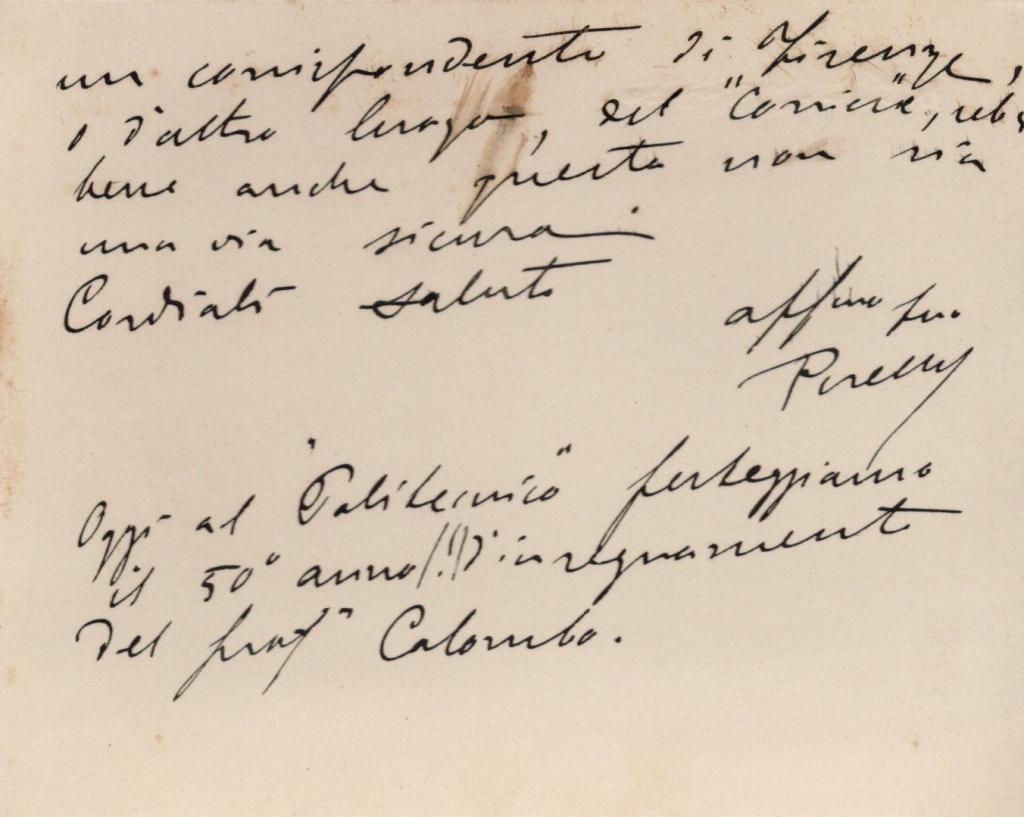 un corrispondente di Firenze,
o d'altro luogo, del "Corriere", seb
bene anche questa non sia
una via sicura
Cordiali saluti
affmo suo
Pirelli
Oggi al "Politecnico" festeggiamo
il 50° anno (!!) d'insegnamento
del prof Colombo.